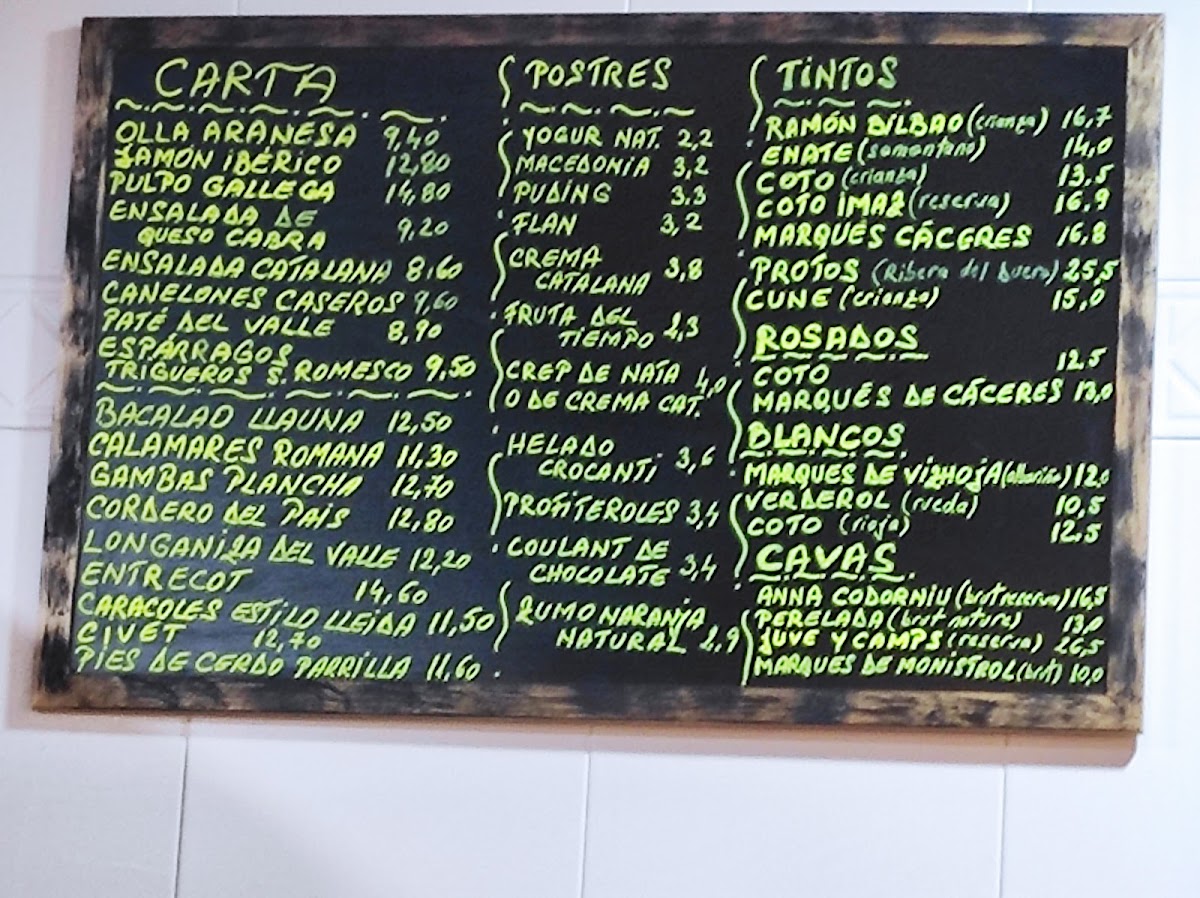 CARTA
OLLA ARANESA 9,40
JAMÓN IBÉRICO 12,80
PULPO GALLEGA 14,80
ENSALADA DE
QUESO CABRA 9,20
ENSALADA CATALANA 8,60
CANELONES CASEROS 9,60
PATÉ DEL VALLE 8,90
ESPÁRRAGOS
TRIGUEROS S. ROMESCO 9,50
BACALAO LLAUNA 12,50
CALAMARES ROMANA 11,30
GAMBAS PLANCHA 12,70
CORDERO DEL PAIS 12,80
LONGANIZA DEL VALLE 12,20
ENTRECOT 14,60
CARACOLES ESTILO LLEIDA 11,50
CIVET 12,70
PIES DE CERDO PARRILLA 11,60
POSTRES
YOGUR NAT. 2,2
MACEDONIA 3,2
PUDING 3,3
FLAN 3,2
CREMA
CATALANA 3,8
FRUTA DEL
TIEMPO 2,3
CREP DE NATA 4,0
O DE CREMA CAT.
HELADO
CROCANTI 3,6
PROFITEROLES 3,4
COULANT DE
CHOCOLATE 3,4
ZUMO NARANJA
NATURAL 2,9
TINTOS
RAMÓN BILBAO (crianza) 16,7
ENATE (somontano) 14,0
COTO (crianza) 13,5
COTO IMAZ (reserva) 16,9
MARQUÉS CÁCERES 16,8
PROTOS (Ribera del Duero) 25,5
CUNE (crianza) 15,0
ROSADOS
COTO 12,5
MARQUÉS DE CÁCERES 13,0
BLANCOS
MARQUES DE VIZHOJA (albariño) 12,0
VERDEROL (rueda) 10,5
COTO (rioja) 12,5
CAVAS
ANNA CODORNIU (brut reserva) 16,5
PERELADA (brut nature) 13,0
JUVE Y CAMPS (reserva) 26,5
MARQUES DE MONISTROL (brut) 10,0